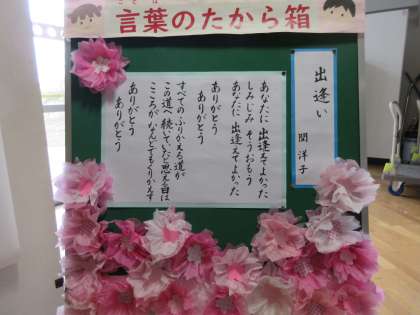 言葉のたから箱
出逢い
関洋子
あなたに 出逢えてよかった
しみじみ そうおもう
あなたに 出逢えてよかった
ありがとう
ありがとう
すべてのふりかえる道が
この道へ 続いていたと思える日は
こころがなんどもくりかえす
ありがとう
ありがとう